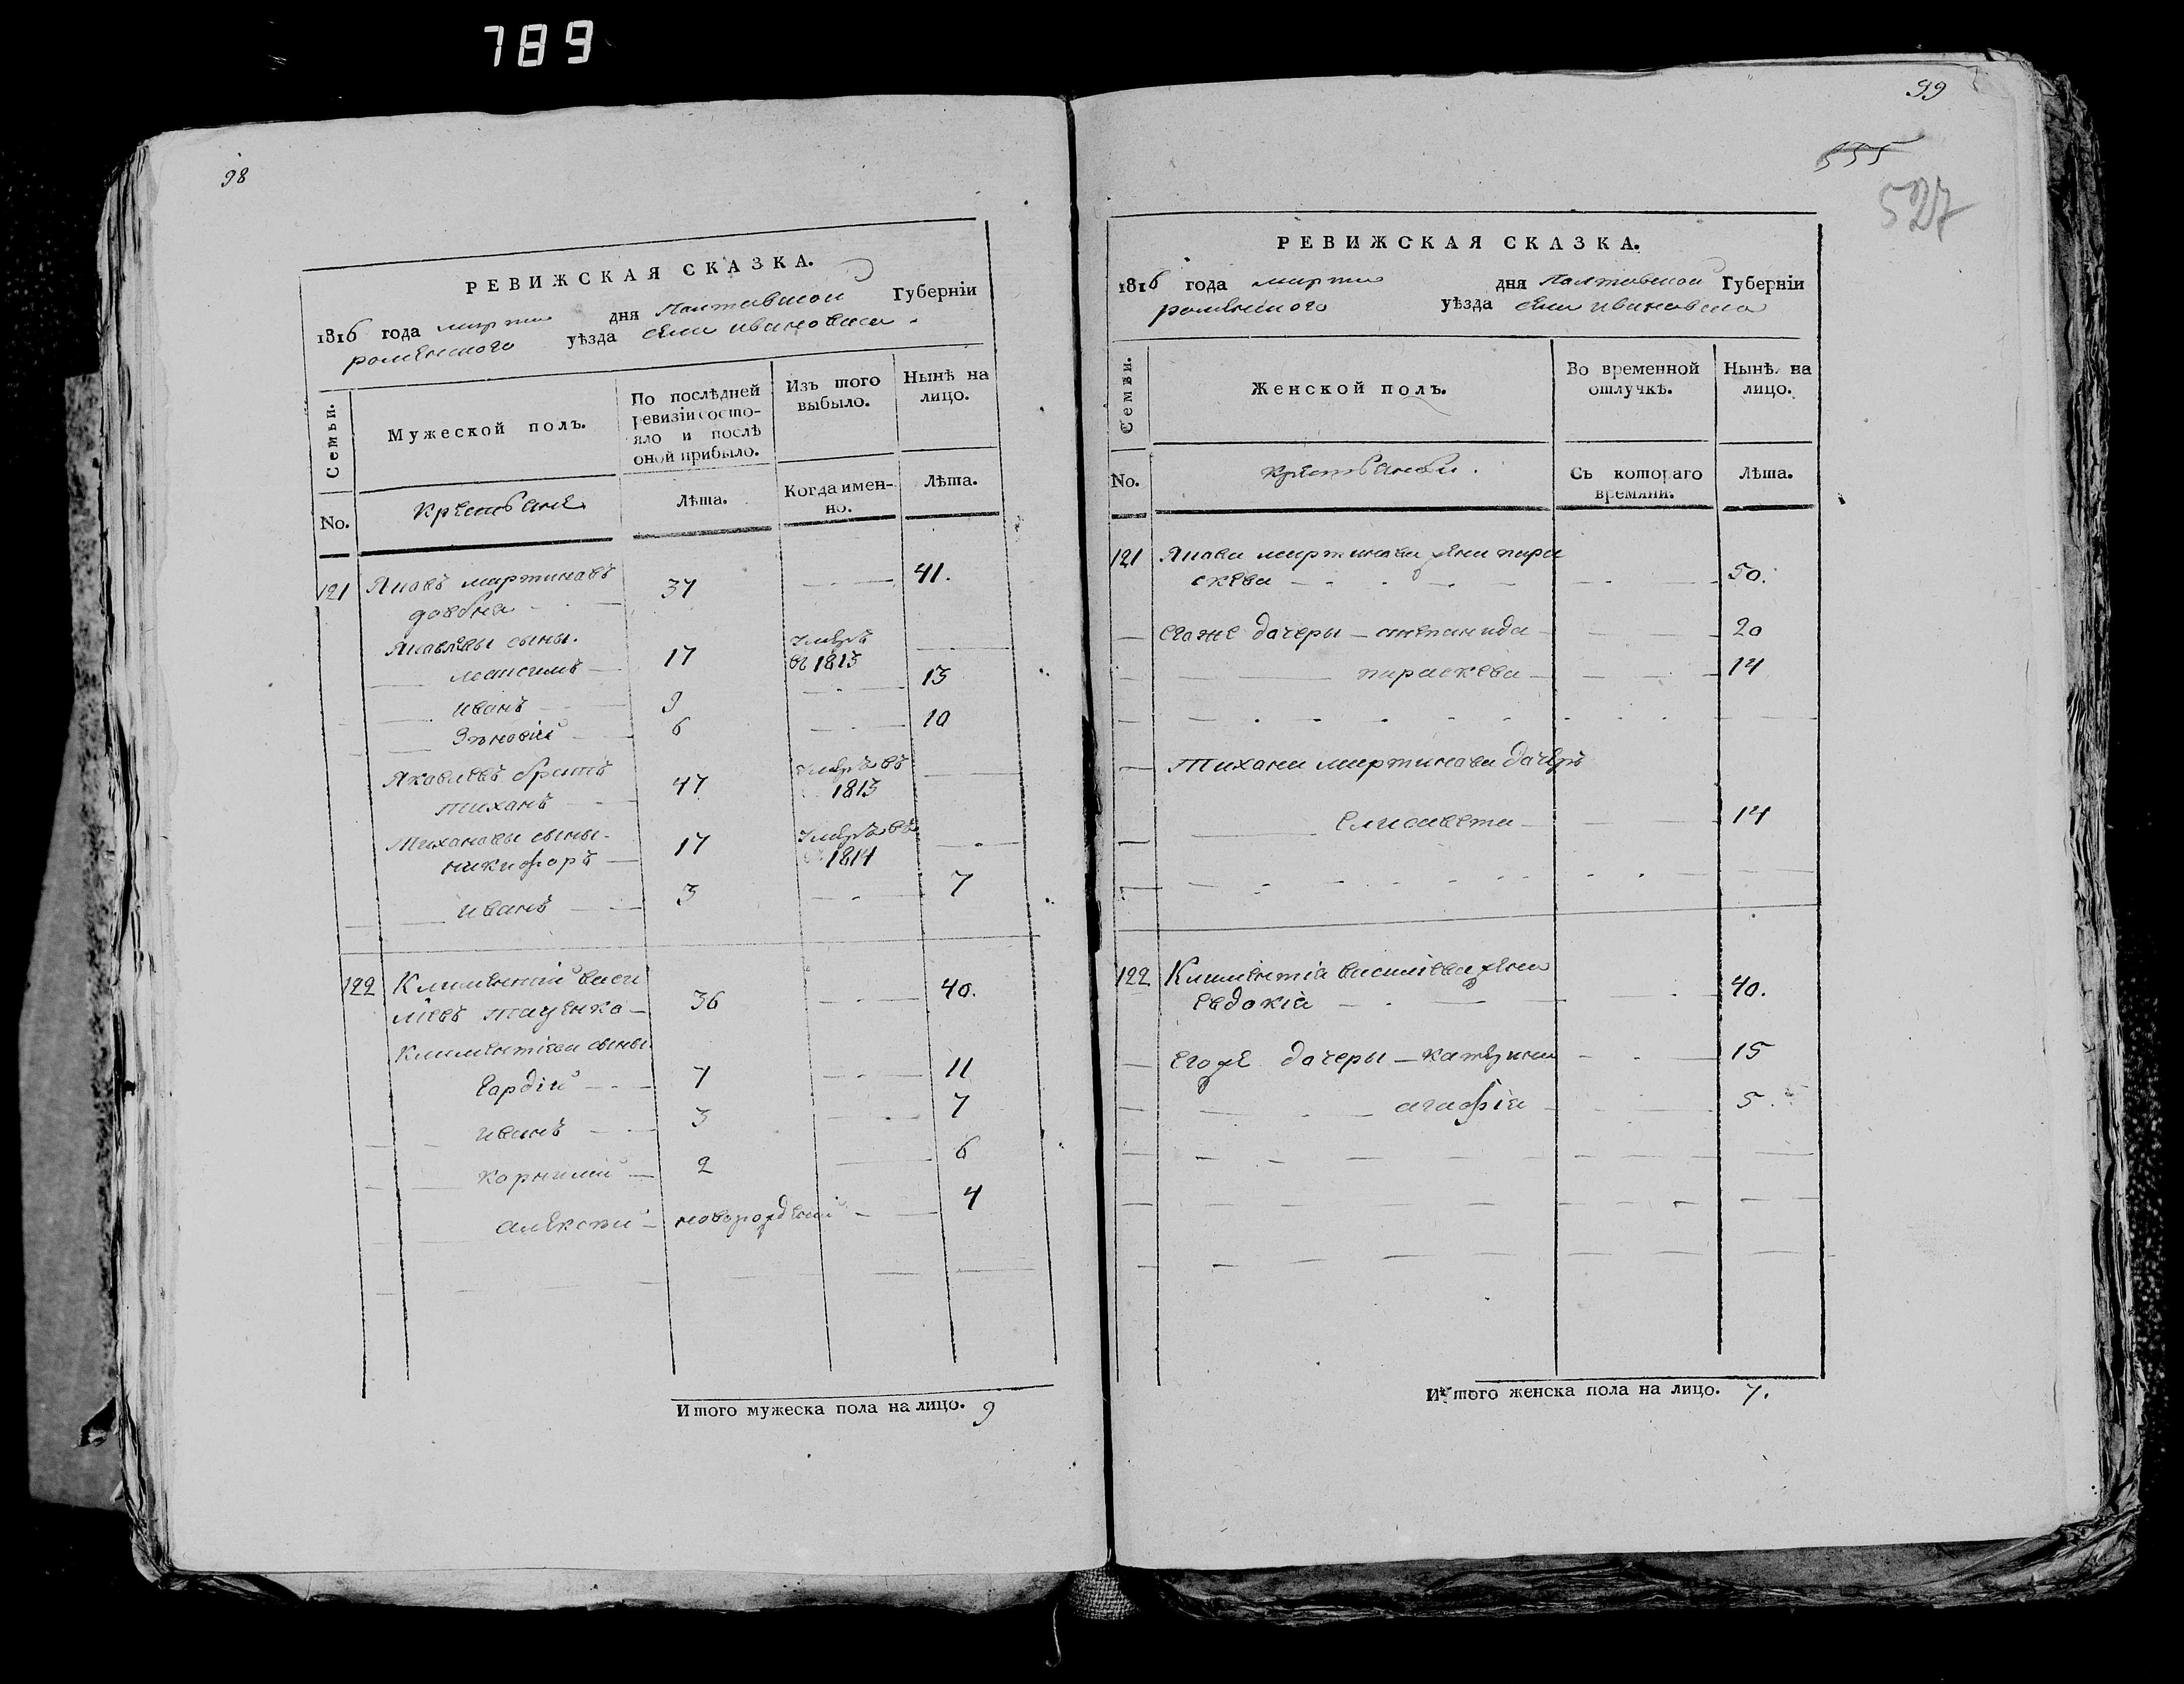 789
98
РЕВИЖСКАЯ СКАЗКА.
1816 года марта дня Полтавской Губерніи
роменского уѣзда села ивановска
Семьи.
Мужеской полъ.
По послѣдней
ревизіи состо-
яло и послѣ
оной прибыло.
Изъ того
выбыло.
Нынѣ на
лицо.
No.
Крестьяне
Лѣта.
Когда имен-
но.
Лѣта.
121 Яковъ мартиновъ 37 41.
довбня
Яковлевы сыны.
максимъ 17 умеръ
въ 1813
иванъ 9 13
Зѣновій 6 10
Яковлевъ братъ
тихонъ 47 умеръ въ
1813
Тихоновы сыны
никифоръ 17 умеръ въ
1814
иванъ 3 7
122 Климентій васи
лієвъ таценко 36 40.
Климентіева сыны
Гордій 7 11
иванъ 3 7
корнилій 2 6
алексѣй новорожденій 4
Итого мужеска пола на лицо. 9
99
555
527
РЕВИЖСКАЯ СКАЗКА.
1816 года марта дня Полтавской Губерніи
роменского уѣзда села ивановска
Семьи.
Женской полъ.
Во временной
отлучкѣ.
Нынѣ на
лицо.
No.
крестьянки.
Съ котораго
времяни.
Лѣта.
121 Якова мартинова жена пара
скева 50.
его же дочеры степанида 20
параскева 14
Тихона мартинова дочеръ
елисавета 14
122 Климентія василієва жена
евдокія 40.
его же дочеры катерина 15
агафія 5.
Итого женска пола на лицо. 7.